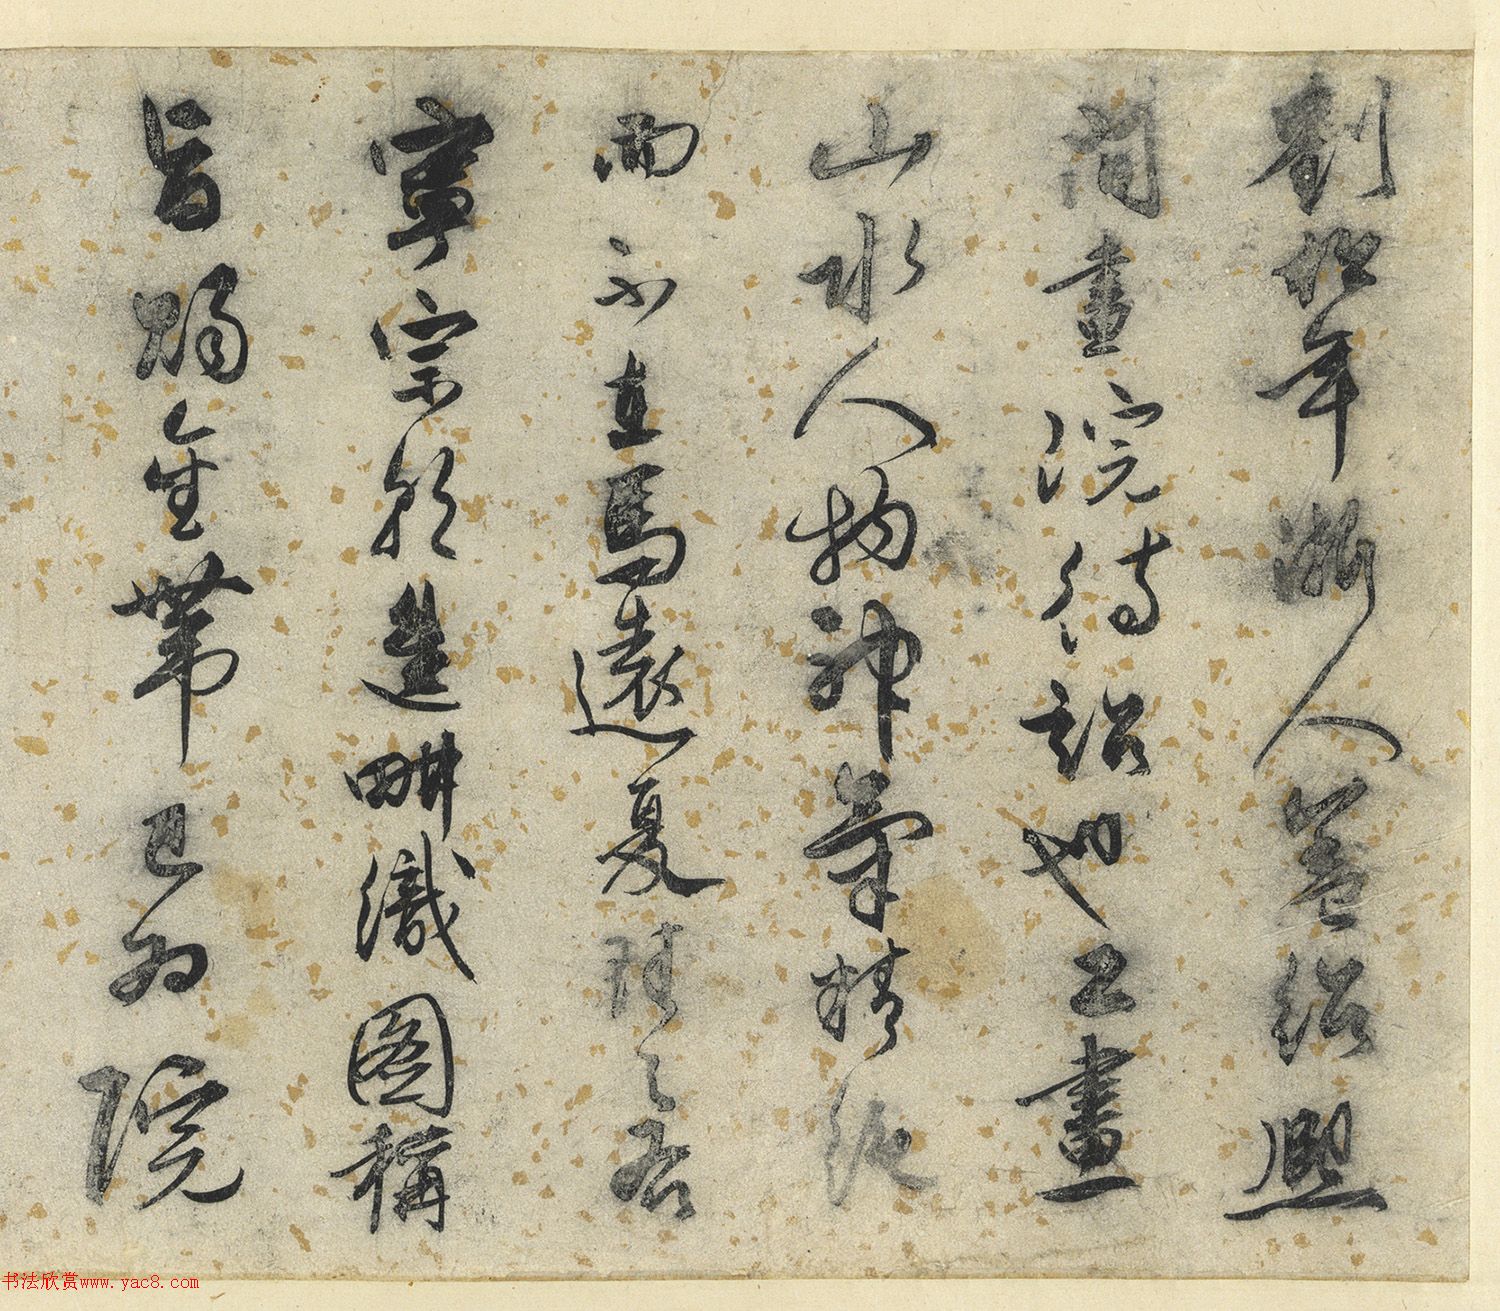 劉松年浙人蓋紹熙
間畫院待詔也工畫
山水人物神氣精絕
而不在馬遠夏珪之后
寧宗朝進畊織圖稱
旨賜金帶且為院
书法欣赏www.yac8.com